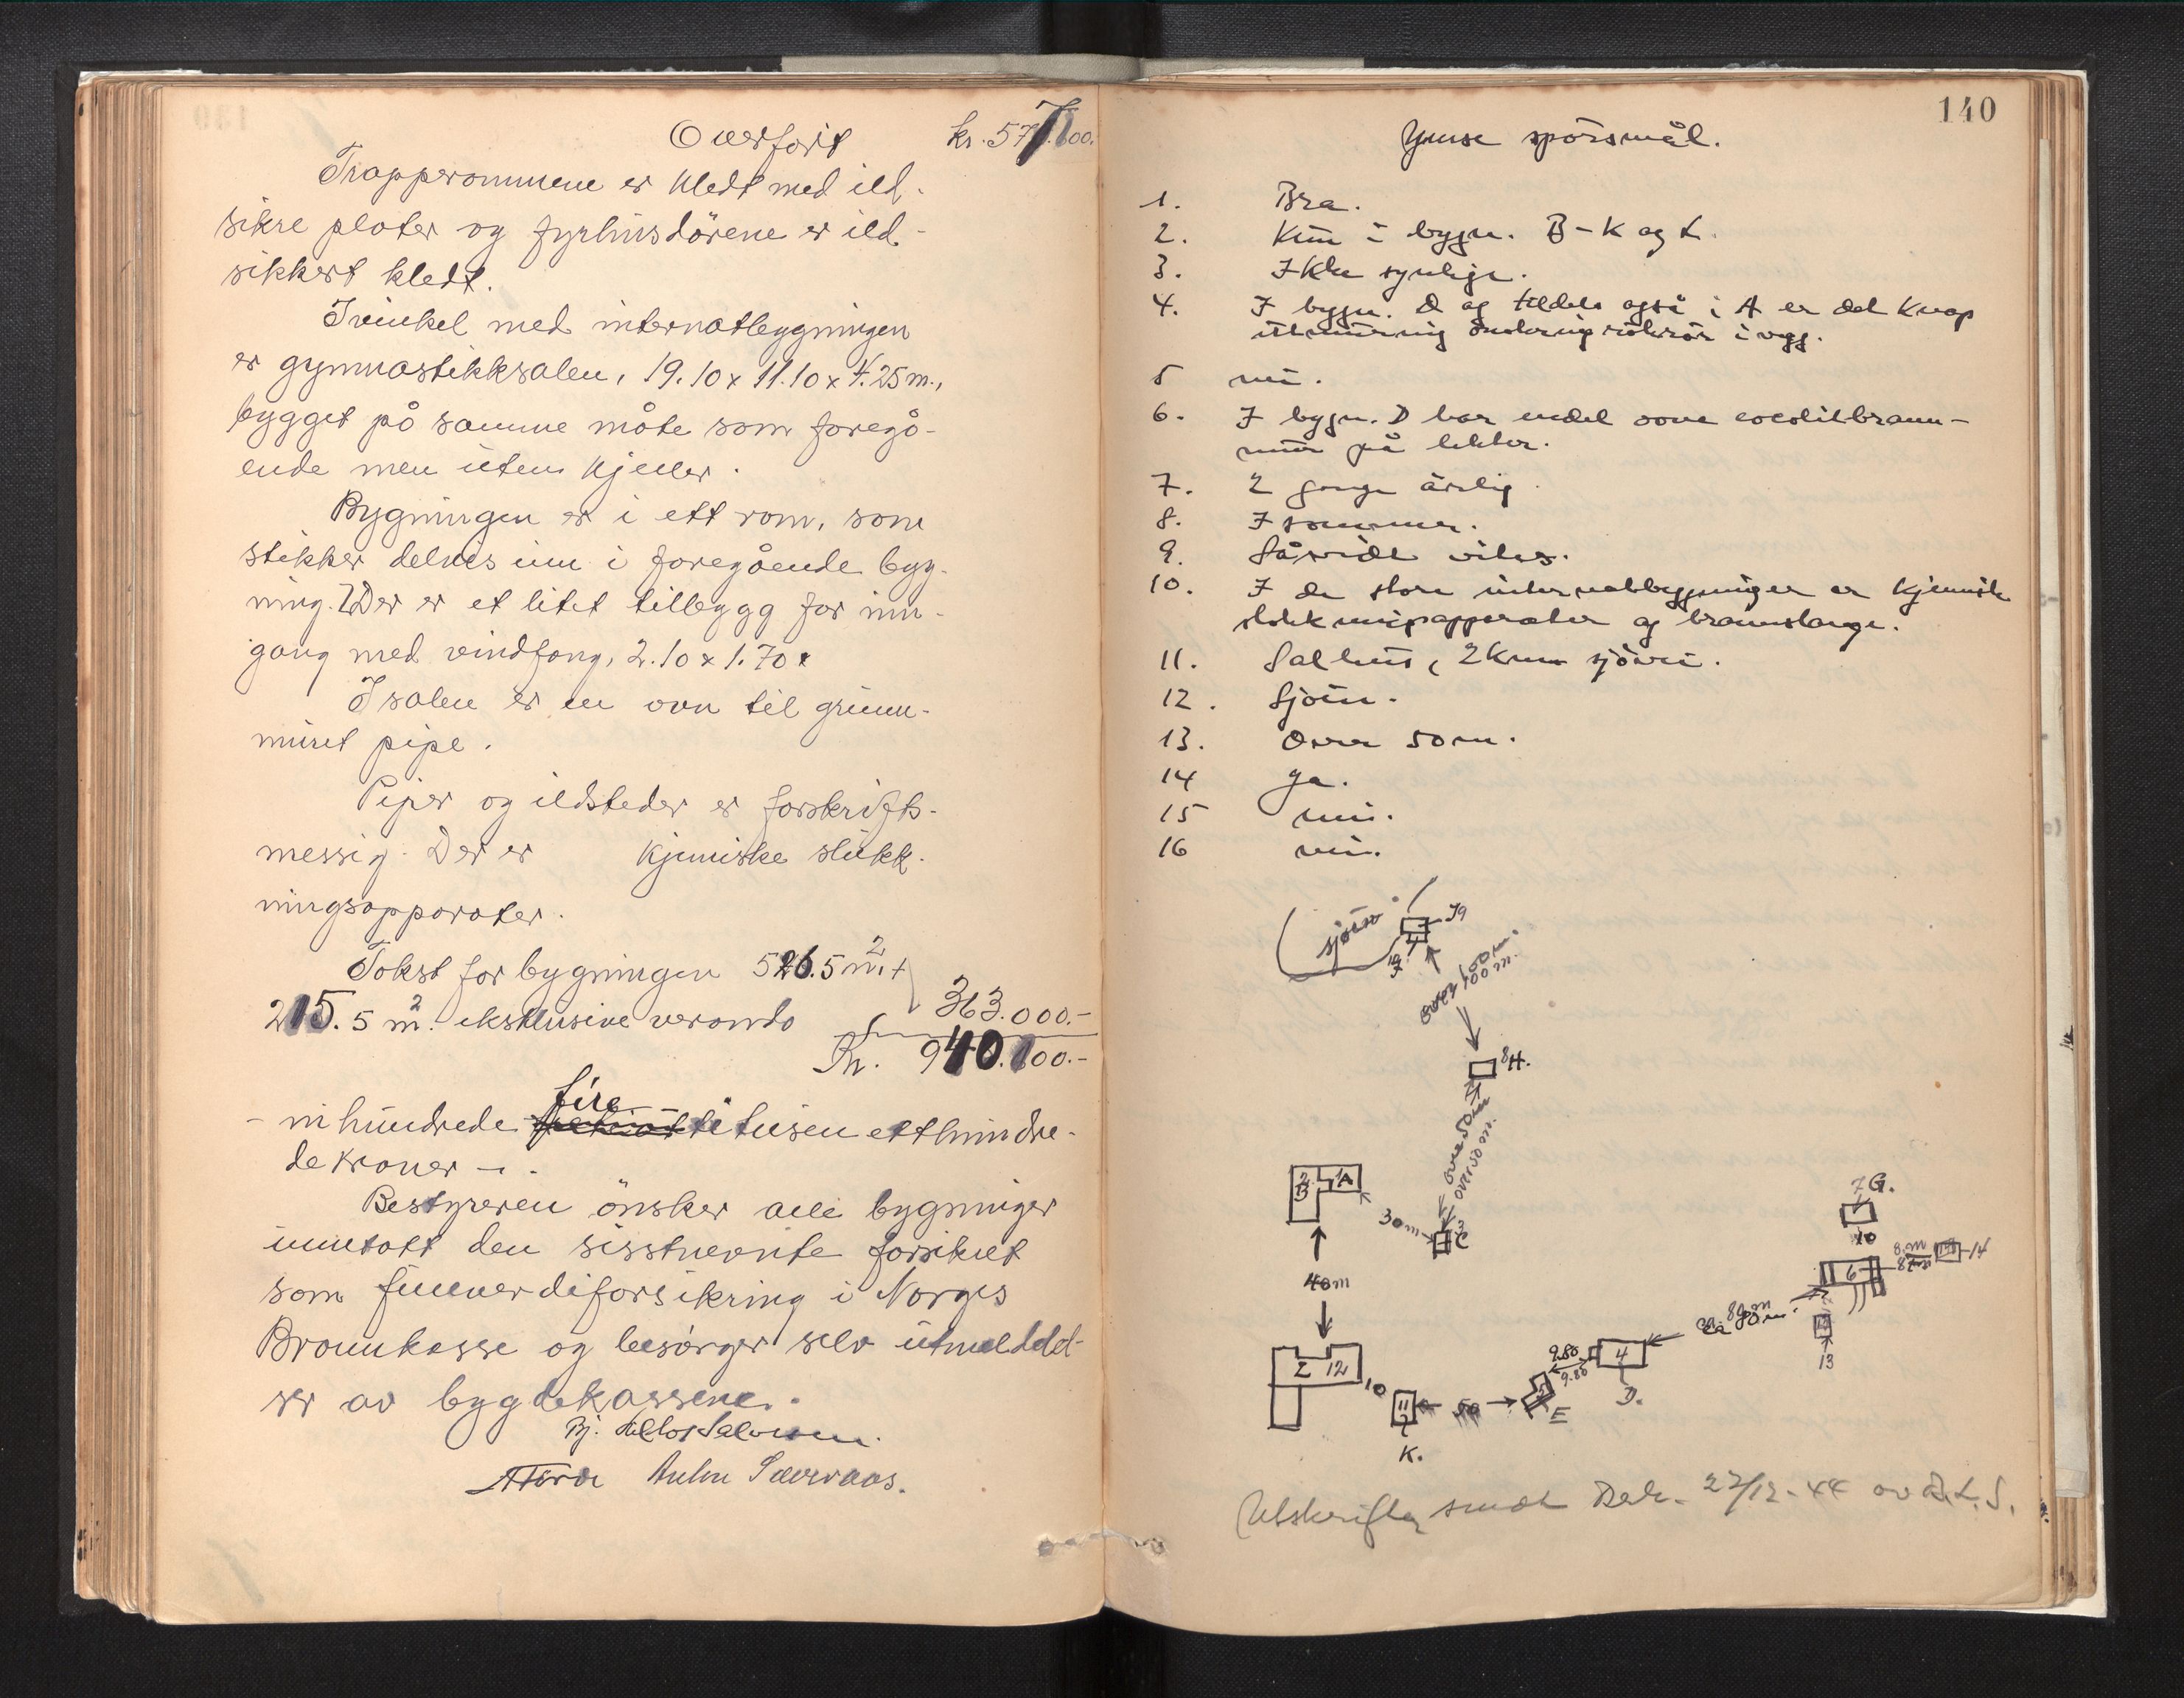 Overført kr. 577.100.
Trapperommene er kledt med ild-
sikre plater og fyrhusdörene er ild-
sikkert kledt.
I vinkel med internatbygningen
er gymnastikksalen, 19.10 x 11.10 x 4.25 m.,
bygget på samme måte som foregå-
ende men uten kjeller.
Bygningen er i ett rom, som
stikker delvis inn i foregående byg-
ning. Der er et litet tilbygg for inn-
gang med vindfang, 2.10 x 1.70 x
I salen er en ovn til grunn-
muret pipe.
Piper og ildsteder er forskrifts-
messig. Der er kjemiske slukk-
ningsapparater.
Takst for bygningen 526.5 m² +
215.5 m² eksklusive veranda 363.000.-
Kr. 940.100.-
fire
- nihundrede ti tusen etthundre-
de kroner - .
Bestyreren önsker alle bygninger
inntatt den sisstnevnte forsikret
som fullverdiforsikring i Norges
Brannkasse og besörger selv utmeldel-
ser av bygdekassene.
Anton Sævraas.
140
Ymse spörsmål.
1. Bra.
2. Kun i bygn. B-K og L.
3. Ikke synlige.
4. I bygn. D og tildels også i A er det knap
utmuring omkring rökrör i vegg.
5 nei.
6. I bygn. D har endel ovne eocolitbrann-
mur på lekter.
7. 2 gange årlig.
8. I sommer.
9. Såvidt vites.
10. I de store internatbygninger er kjemisk
slokkningsapparater og brannslange.
11. Salhus, 2 km sjövei.
12. Sjöen.
13. Over 50 m.
14 ja.
15 nei.
16 nei.
sjöen
J9
over 100 m.
over 100 m.
8 H.
over 50 m
over 50 m.
2 B 1 A
30 m
3 C
40 m
7 G.
10
8. m 14
6
ca. 80 m.
13
L 12
10
11
K.
50
E
9.80
9.80
4
D.
Utskrifter sendt Dek. 27/12-44 av B.L.S.